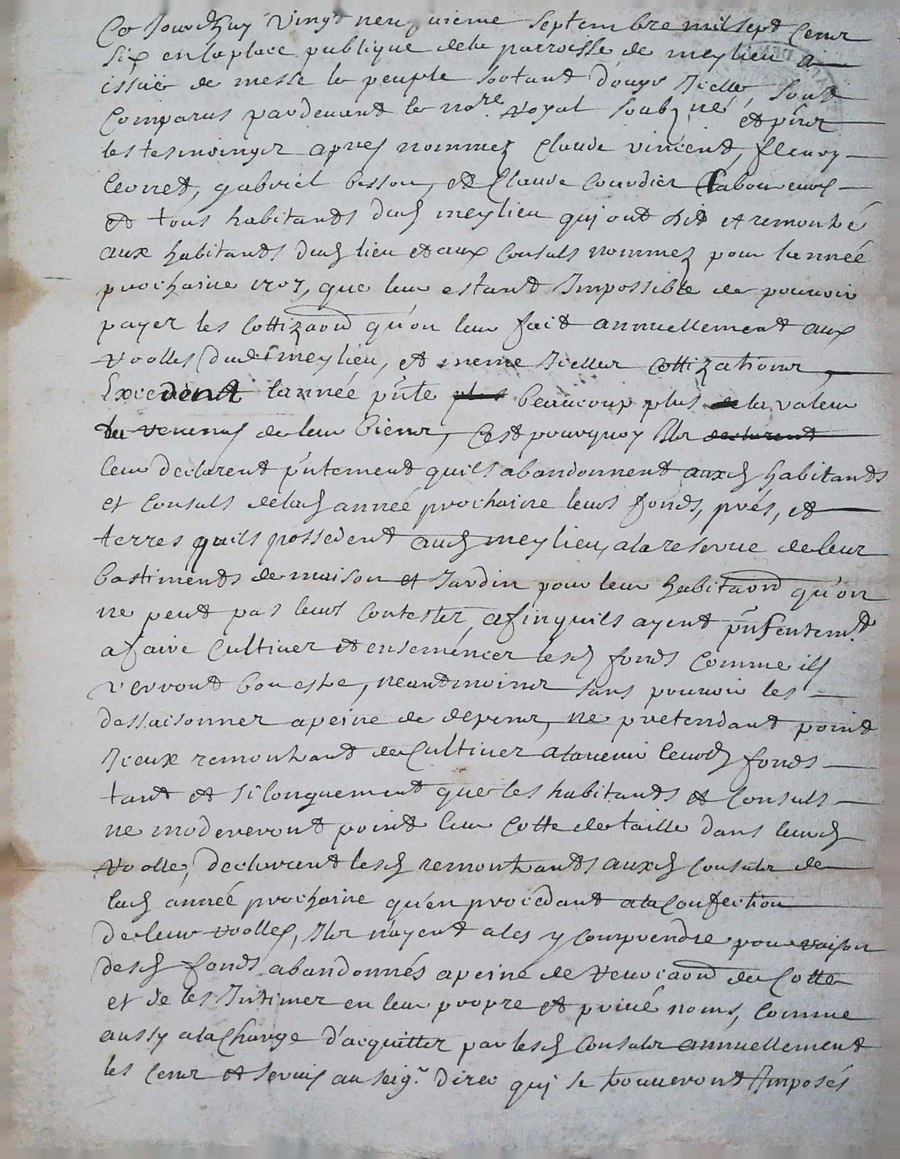 Ce Jourdhuy vingt neufvieme Septembre mil sept Cent
six en la place publique de la parroisse de meylieu a
issüe de messe le peuple sortant d'ouyr Icelle, sont
Comparus pardevant le no.re Royal soubz.né, et pñtz
les tesmoingz apres nommez Claude vincent, fleury
Leonet, gabriel besson, et Claude Courdier Laboureurs
et tous habitants dud meylieu qui ont dit et remontré
aux habitants dud lieu et aux Consuls nommez pour lannée
prochaine 1707, que leur estant Impossible de pouvoir
payer les Cottizaōns qu'on leur fait annuellement aux
Roolles dudit meylieu, et meme Icelles Cottizations
Excedent lannée pñte plus beaucoup plus de la valeur
des revenus de leur biens, C'est pourquoy Ilz declarent
leur declarent pñtement quils abandonnent auxd habitants
et Consuls de lad année prochaine leurs fonds, prés, et
terres quils possedent aud meylieu, a la reserve de leur
bastiments de maison et Jardin pour leur habitaōn qu'on
ne peut pas leurs Contester, afin quils ayent pñsentem.t
a faire Cultiver et ensemencer lesd fonds Comme ils
verront bon estre, neantmoins sans pouvoir les
dessaisonner a peine de depens, ne pretendant point
Iceux remontrant de Cultiver a ladvenir leursd fonds
tant et si longuement que les habitants et Consuls
ne modereront point leur Cotte de taille dans leursd
Roolle, declarant lesd remontrants auxd Consuls de
lad année prochaine qu'en procedant a la Confection
de leur Roolles, Ilz n'ayent a les y Comprendre pour raison
desd fonds abandonnés a peine de revocaōn de Cotte
et de les Intimer en leur propre et privé noms, Comme
aussy a la Charge d'acquitter par lesd Consuls annuellement
les Cens et servis au seig.r direc qui se trouveront Imposés